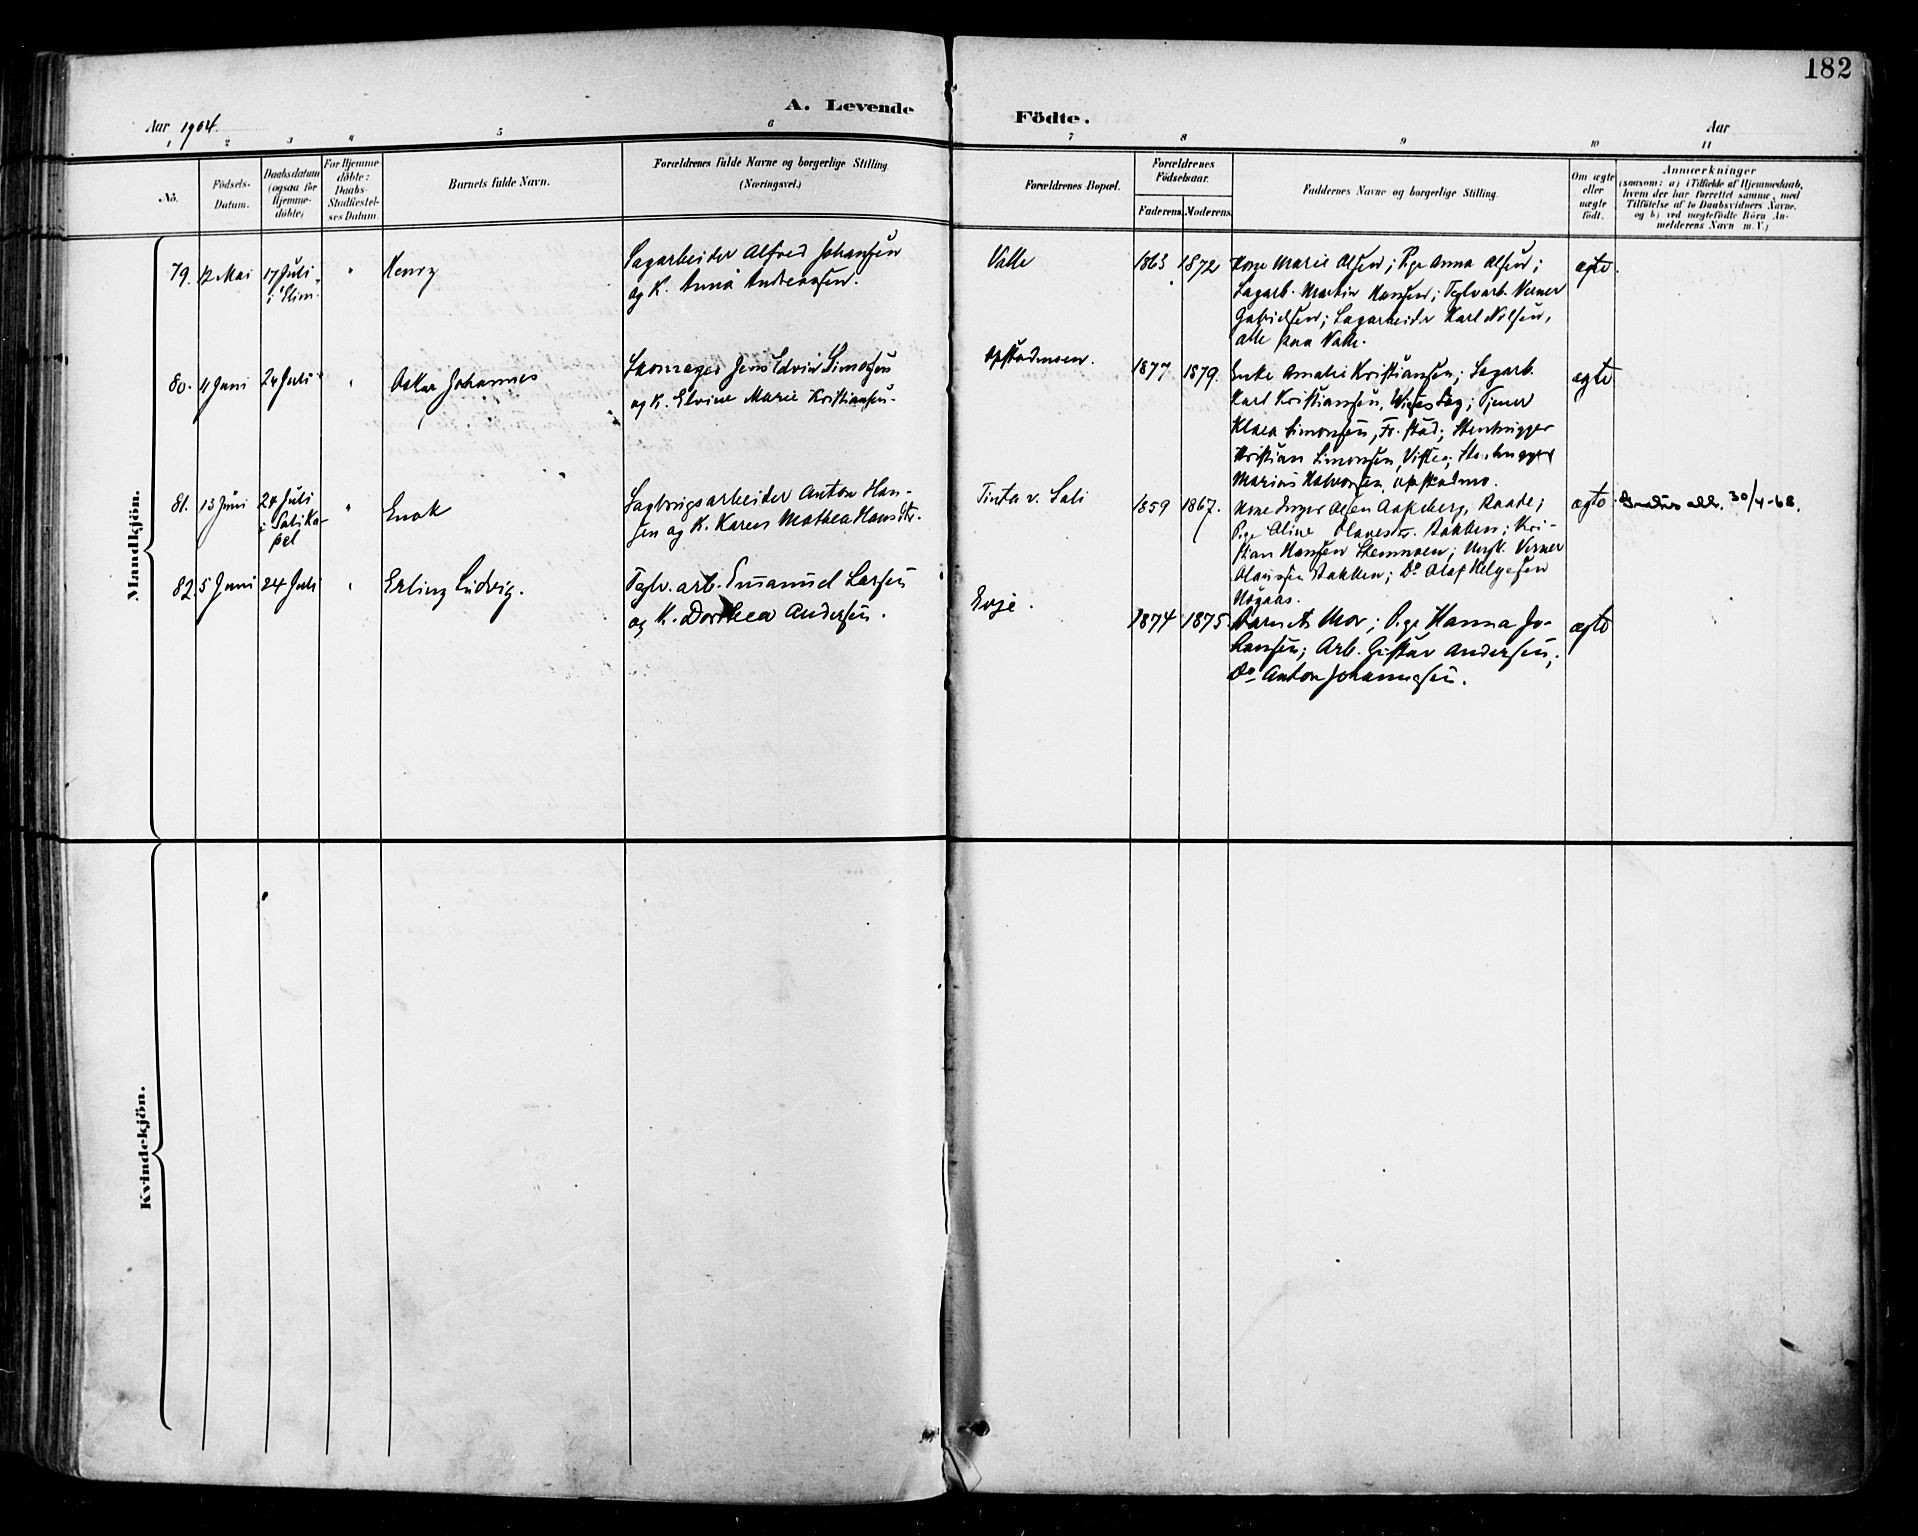 182
A. Levende Födte.
Aar 1904.
Aar
1 2 3 4 5 6 7 8 9 10 11
No.
Födsels-Datum.
Daabsdatum (ogsaa for Hjemmedöbte)
For Hjemmedöbte: Daabs-Stadfæstelses Datum.
Barnets fulde Navn.
Forældrenes fulde Navne og borgerlige Stilling (Næringsvei.)
Forældrenes Bopæl.
Forældrenes Födselsaar.
Faderens Moderens
Faddernes Navne og borgerlige Stilling.
Om ægte eller uægte födt.
Anmærkninger
(saasom: a) i Tilfælde af Hjemmedaab,
hvem der har forrettet samme, med
Tilföielse af to Daabsvidners Navne,
og b) ved uægtefödte Börn An-
melderens Navn m. V.)
Mandkjön.
79. 12 Mai
17 Juli
Henry
Sagarbeider Alfred Johansen
og K. Anna Andreassen.
Valle
1863 1872
Kone Marie Olsen; Pige Anna Olsen;
Sagarb. Martin Hansen; Teglvarb. Verner
Gabrielsen; Sagarbeider Karl Nilsen,
alle paa Valle.
ægte
80. 11 Juni
24 Juli
Oskar Johannes
Skomager Jens Edvin Simonsen
og K. Elvine Marie Kristiansen.
Opstadmoen.
1877 1879.
Enke Amalie Kristiansen; Sagarb.
Karl Kristiansen, Tjener
Klara Simonsen, Fr.stad; Stenhugger
Kristian Simonsen, Stenhugger
Marius Halvorsen, Opstadmo.
ægte
81. 13 Juni
24 Juli
i Soli Ka-
pel
Enok
Sagbrugsarbeider Anton Han-
sen og K. Karen Mathea Hansdtr.
Tinta v. Soli
1859 1867.
Kone Inger Olsen Aakeberg, Raade;
Pige Oline Olavesdtr. Bakken; Kri-
stian Hansen Stenmoen; Ungk. Verner
Olaussen Bakken; Do Olaf Helgesen
Högaas.
ægte
30/4-68.
82. 5 Juni
24 Juli
Erling Ludvig.
Teglv. arb. Emanuel Larsen
og K. Dorthea Andersen.
Evje.
1874 1875
Barnets Mor; Pige Hanna Jo-
hansen; Arb. Gustav Andersen;
Do Anton Johannesen.
ægte
Kvindekjön.